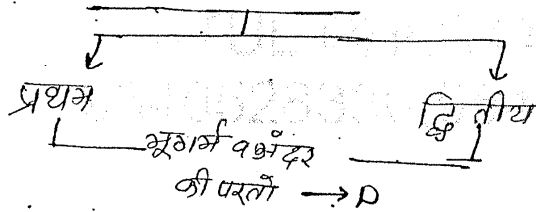 प्रथम द्वितीय
भूगर्भ व अंदर
की परतो → D